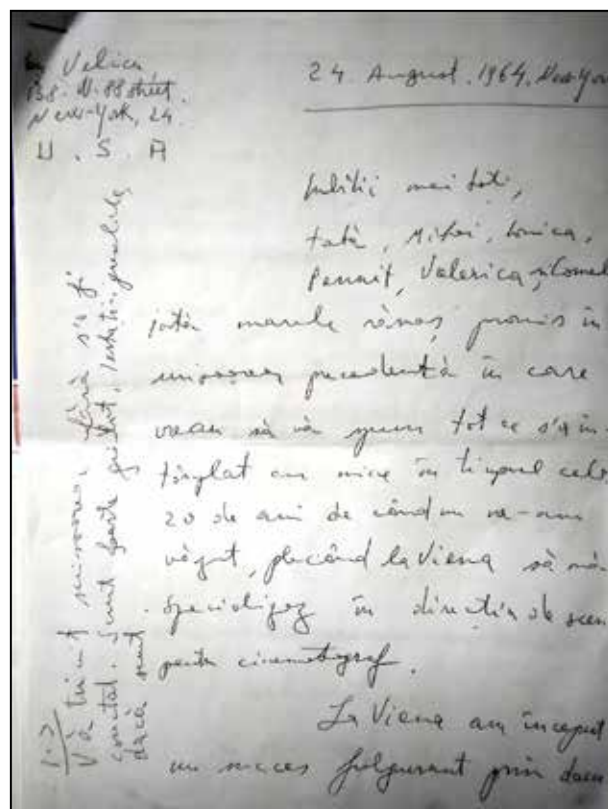 Velica
158. W. 88 street.
New-York, 24.
U. S. A
24 August. 1964. New-York
Iubitii mei toti,
tată, Mihai, Lonica,
Panait, Valerica, Cornel
iată marele răvaş promis în
scrisoarea precedentă în care
vreau să vă spun tot ce s'a în-
tâmplat cu mine în timpul celor
20 de ani de când nu ne-am
văzut, plecând la Viena să mă
specializez în direcţia de scenă
pentru cinematograf.
La Viena am început
un succes fulgurant prin
1.) Vă trimit scrisoarea, fără s'o fi
Sunt foarte grăbit, iertaţi greşelile,
dacă sunt.